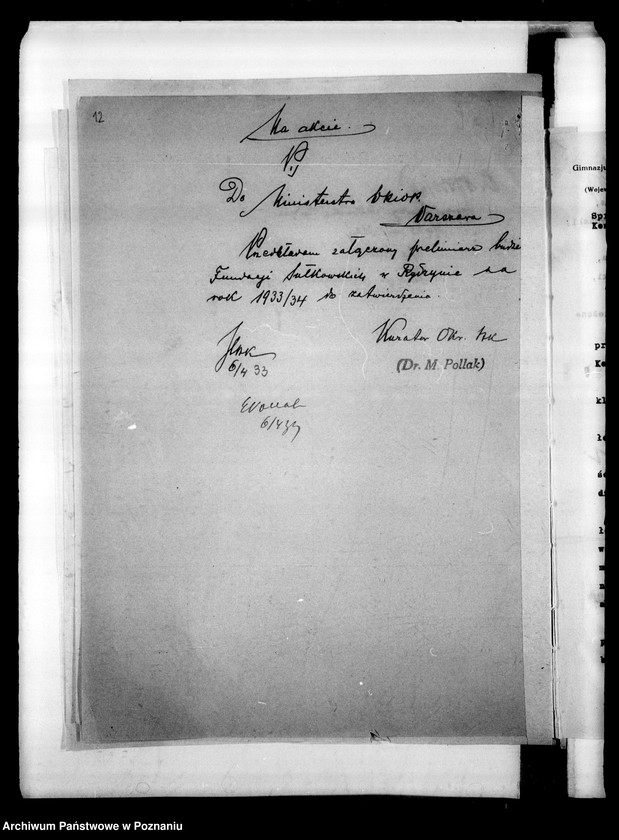 12
Na akcie.
Do Ministerstwa WRiOP.
Warszawa
Przedkładam załączony preliminarz budż
Fundacji Sułkowskich w Rydzynie na
rok 1933/34 do zatwierdzenia.
Kurator Okr. Szk
6/4 33
(Dr. M. Pollak)
6/4 33
Gimnazju
(Wojew
Spr
Kor
pr
Ko
kl
Archiwum Państwowe w Poznaniu